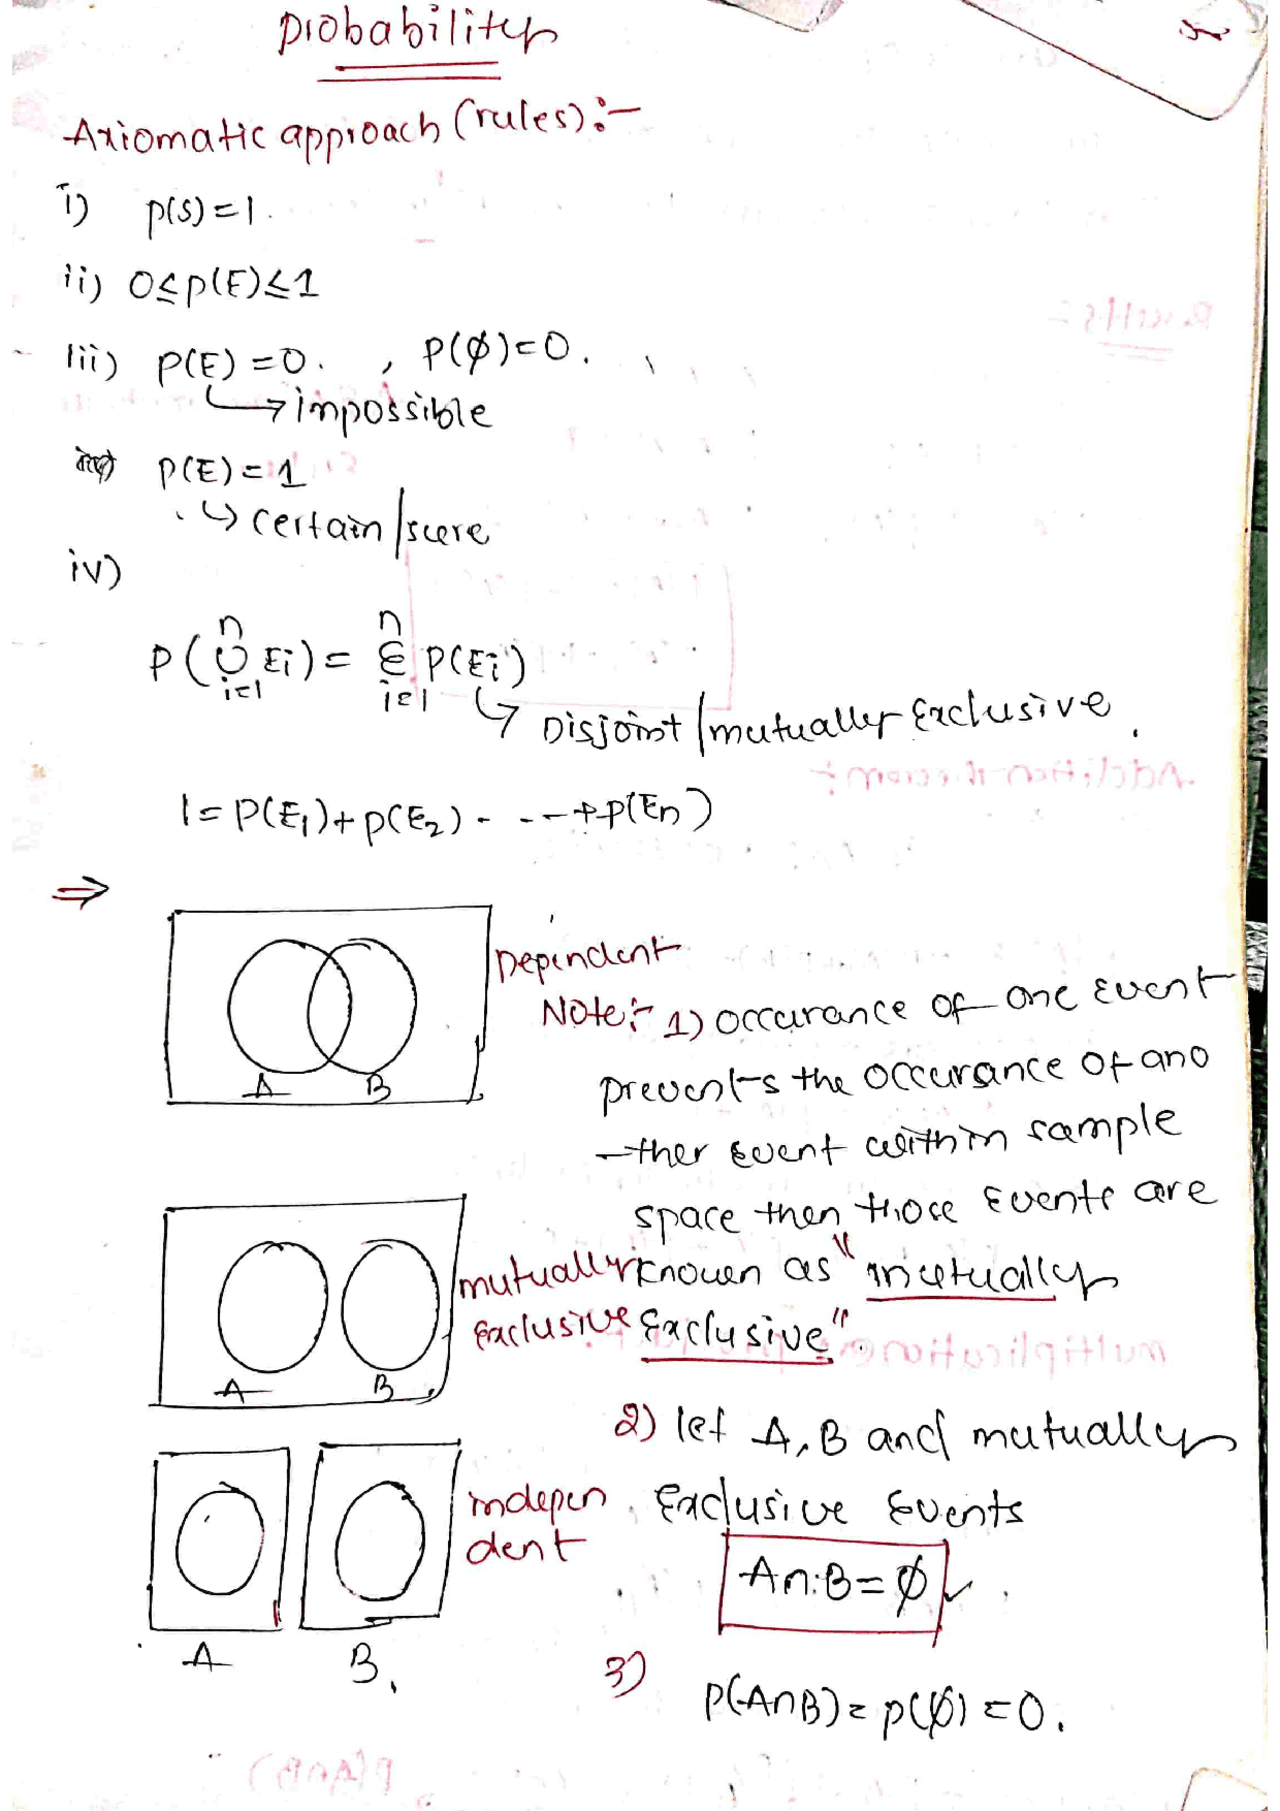 Probability
Axiomatic approach (rules):-
i) P(S)=1.
ii) 0≤P(E)≤1
iii) P(E)=0. , P(∅)=0.
↳ impossible
P(E)=1
↳ certain/sure
iv)
P(⋃ⁿᵢ₌₁ Ei) = Σⁿᵢ₌₁ P(Ei)
↳ Disjoint/mutually Exclusive.
1= P(E₁)+P(E₂)- - - - +P(En)
⇒
Dependent
A B
Note:- 1) occurance of one Event
prevents the occurance of ano
-ther Event within sample
space then those Events are
known as "mutually
Exclusive".
mutually
Exclusive
A B
2) let A, B and mutually
Exclusive Events
A∩B=∅
indepen
dent
A B.
3) P(A∩B)= P(∅) =0.
Results:
Addition theorem:
P(A∩B)